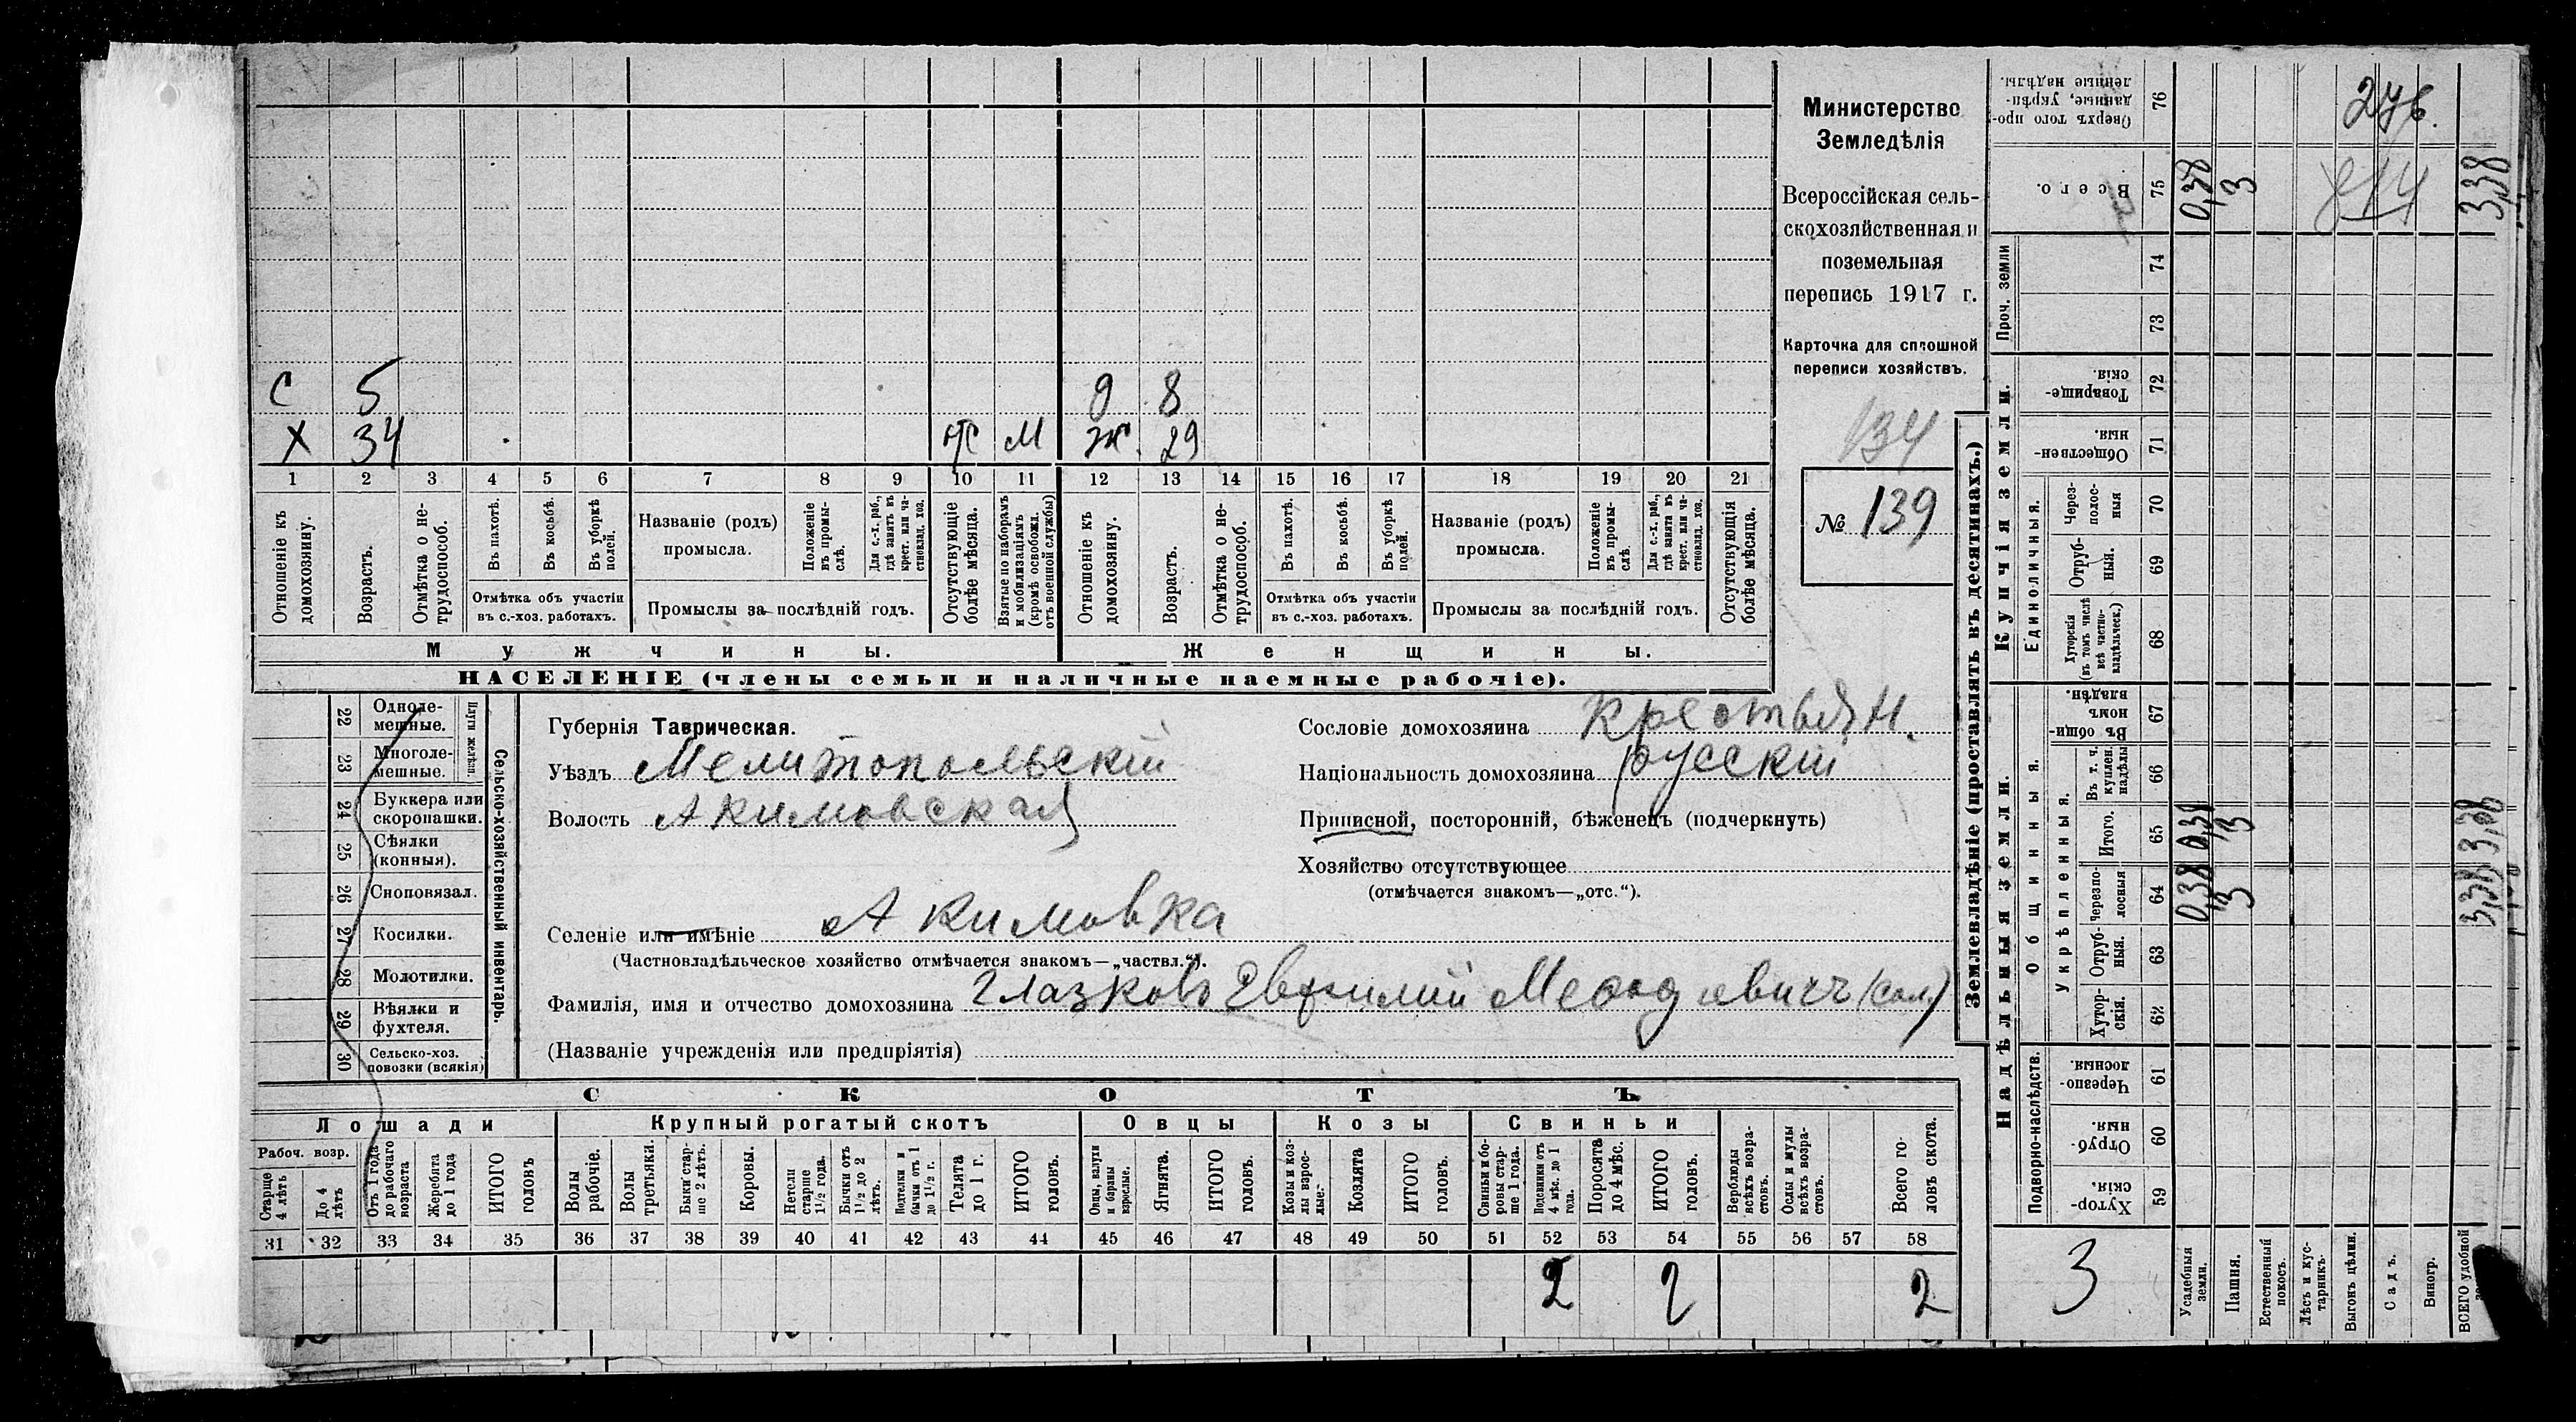 Министерство
Земледѣлія
Всероссійская сель-
скохозяйственная и
поземельная
перепись 1917 г.
Карточка для сплошной
переписи хозяйствъ.
134
№ 139
С 5 д 8
Х 34 отс М ж. 29
1 2 3 4 5 6 7 8 9 10 11 12 13 14 15 16 17 18 19 20 21
Отношеніе къ домохозяину.
Возрастъ.
Отмѣтка о не-трудоспособ.
Въ пахотѣ.
Въ косьбѣ.
Въ уборкѣ полей.
Отмѣтка объ участіи
въ с.-хоз. работахъ.
Названіе (родъ)
промысла.
Положеніе въ промы-слѣ.
Для с.-х. раб., гдѣ занятъ въ крест. или ча-стновлад. хоз.
Промыслы за послѣдній годъ.
Отсутствующіе болѣе мѣсяца.
Взятые по наборамъ и мобилизаціямъ (кромѣ освобожд. отъ военной службы)
Отношеніе къ домохозяину.
Возрастъ.
Отмѣтка о не-трудоспособ.
Въ пахотѣ.
Въ косьбѣ.
Въ уборкѣ полей.
Отмѣтка объ участіи
въ с.-хоз. работахъ.
Названіе (родъ)
промысла.
Положеніе въ промы-слѣ.
Для с.-х. раб., гдѣ занята въ крест. или ча-стновлад. хоз.
Промыслы за послѣдній годъ.
Отсутствующія болѣе мѣсяца.
Мужчины. Женщины.
НАСЕЛЕНІЕ (члены семьи и наличные наемные рабочіе).
22 Одноле-мешные.
23 Многоле-мешные.
Плуги желѣзн.
24 Буккера или скоропашки.
25 Сѣялки (конныя).
26 Сноповязал.
27 Косилки.
28 Молотилки.
29 Вѣялки и фухтеля.
30 Сельско-хоз. повозки (всякія)
Сельско-хозяйственный инвентарь.
Губернія Таврическая.
Уѣздъ Мелитопольскій
Волость Акимовская
Сословіе домохозяина Крестьян.
Національность домохозяина русскій
Приписной, посторонній, бѣженецъ (подчеркнуть)
Хозяйство отсутствующее
(отмѣчается знакомъ—„отс.“).
Селеніе или имѣніе Акимовка
(Частновладѣльческое хозяйство отмѣчается знакомъ—„частвл.“).
Фамилія, имя и отчество домохозяина Глазковъ Евфимій Мефодіевичъ (сол.)
(Названіе учрежденія или предпріятія)
СКОТЪ
Лошади Крупный рогатый скотъ Овцы Козы Свиньи
Рабоч. возр.
Старше 4 лѣтъ
До 4 лѣтъ
Отъ 1 года до рабочаго возраста
Жеребята до 1 года
ИТОГО головъ
Волы рабочіе.
Волы третьяки.
Быки стар-ше 2 лѣтъ.
Коровы.
Нетели старше 1½ года.
Бычки отъ 1½ до 2 лѣтъ.
Подтелки и бычки отъ 1 до 1½ г.
Телята до 1 г.
ИТОГО головъ.
Овцы, валухи и бараны взрослые.
Ягнята.
ИТОГО головъ.
Козы и коз-лы взрос-лые.
Козлята
ИТОГО головъ.
Свиньи и бо-ровы стар-ше 1 года.
Подсвинки отъ 4 мѣс. до 1 года.
Поросята до 4 мѣс.
ИТОГО головъ.
Верблюды всѣхъ возра-стовъ.
Ослы и мулы всѣхъ возра-стовъ.
Всего го-ловъ скота.
31 32 33 34 35 36 37 38 39 40 41 42 43 44 45 46 47 48 49 50 51 52 53 54 55 56 57 58
2 2 2
Землевладѣніе (проставлять въ десятинахъ.)
Купчія земли.
Надѣльныя земли.
Проч. земли
Единоличныя.
Общинныя.
Укрѣпленныя.
Подворно-наслѣдств.
Сверхъ того про-данные, укрѣп-ленные надѣлы. 76
Всего. 75 0,38 3 3,38
74
73
Товарище-скія. 72
Обществен-ныя. 71
Через-полос-ныя 70
Отруб-ныя. 69
Хуторскія (въ томъ числѣ всѣ частно-владѣльческ.) 68
Въ общи-номъ владѣн. 67
Въ т. ч. куплен. надѣлы 66
Итого. 65 0,38 3 3,38
Черезпо-лосныя 64 0,38 3 3,38
Отруб-ныя. 63
Хутор-скія. 62
Черезпо-лосныя. 61
Отруб-ныя. 60
Хутор-скія. 59
3
Усадебныя земли.
Пашня.
Естественный покосъ.
Лѣсъ и кус-тарникъ.
Выгонъ цѣлин.
Садъ.
Виногр.
ВСЕГО удобной